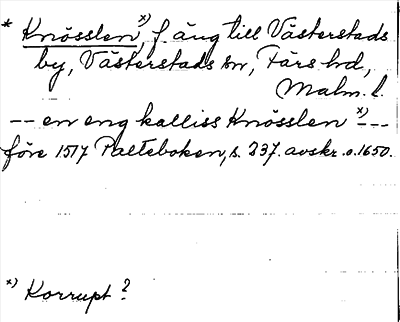 * Knösslen x), f. äng till Västerstads
by, Västerstads sn, Färs hd,
Malm. l.
-- en eng kalliss Knösslen x) ---
före 1517 Palteboken, s. 337. avskr. o. 1650.
x) Korrupt?